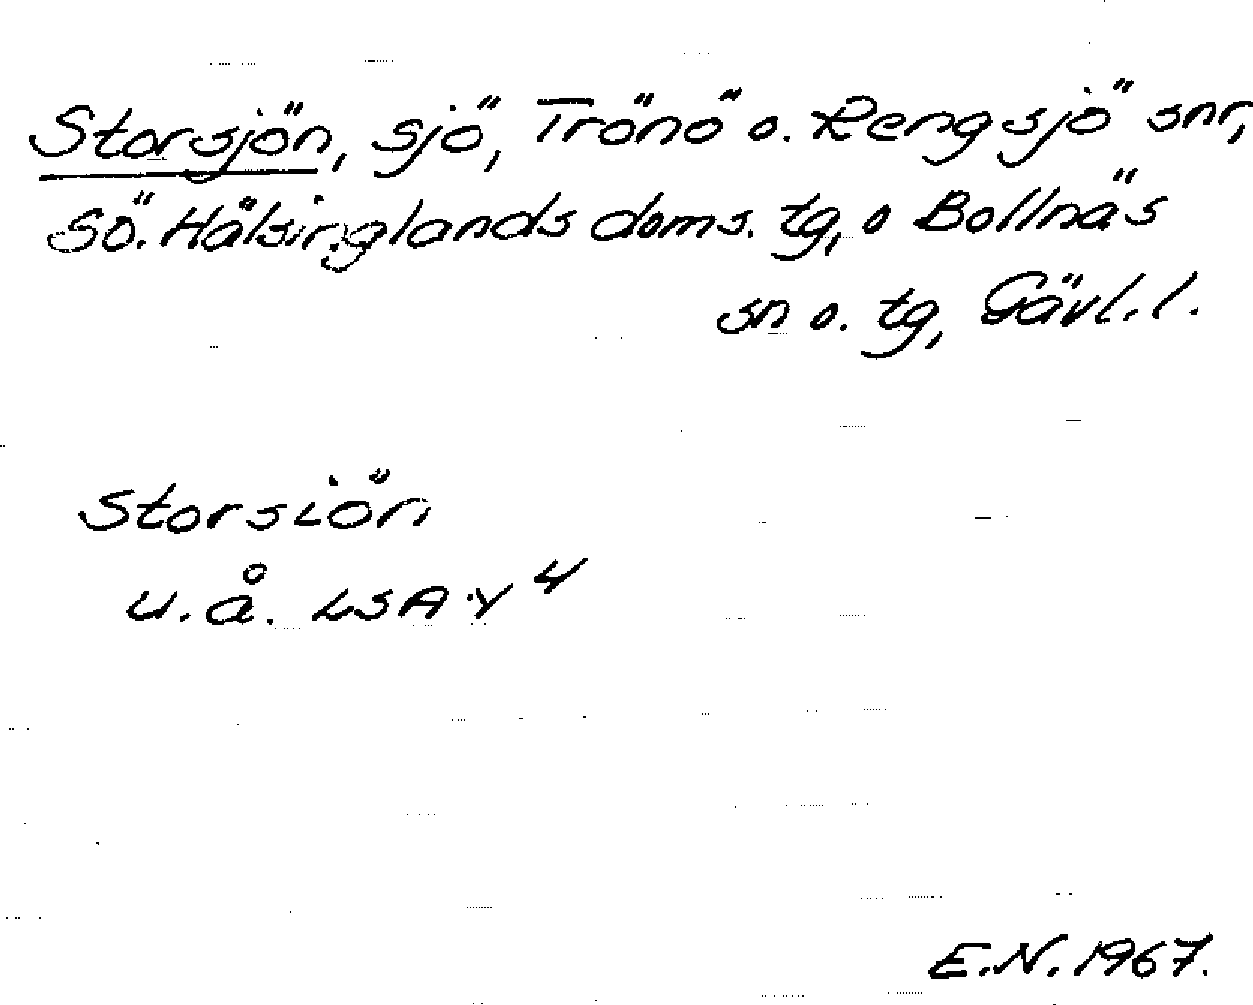 Storsjön, sjö, Trönö o. Rengsjö snr,
Sö. Hälsinglands doms. tg, o Bollnäs
sn o. tg, Gävl. l.
Storsiön
u. å. LSA Y 4
E.N. 1967.